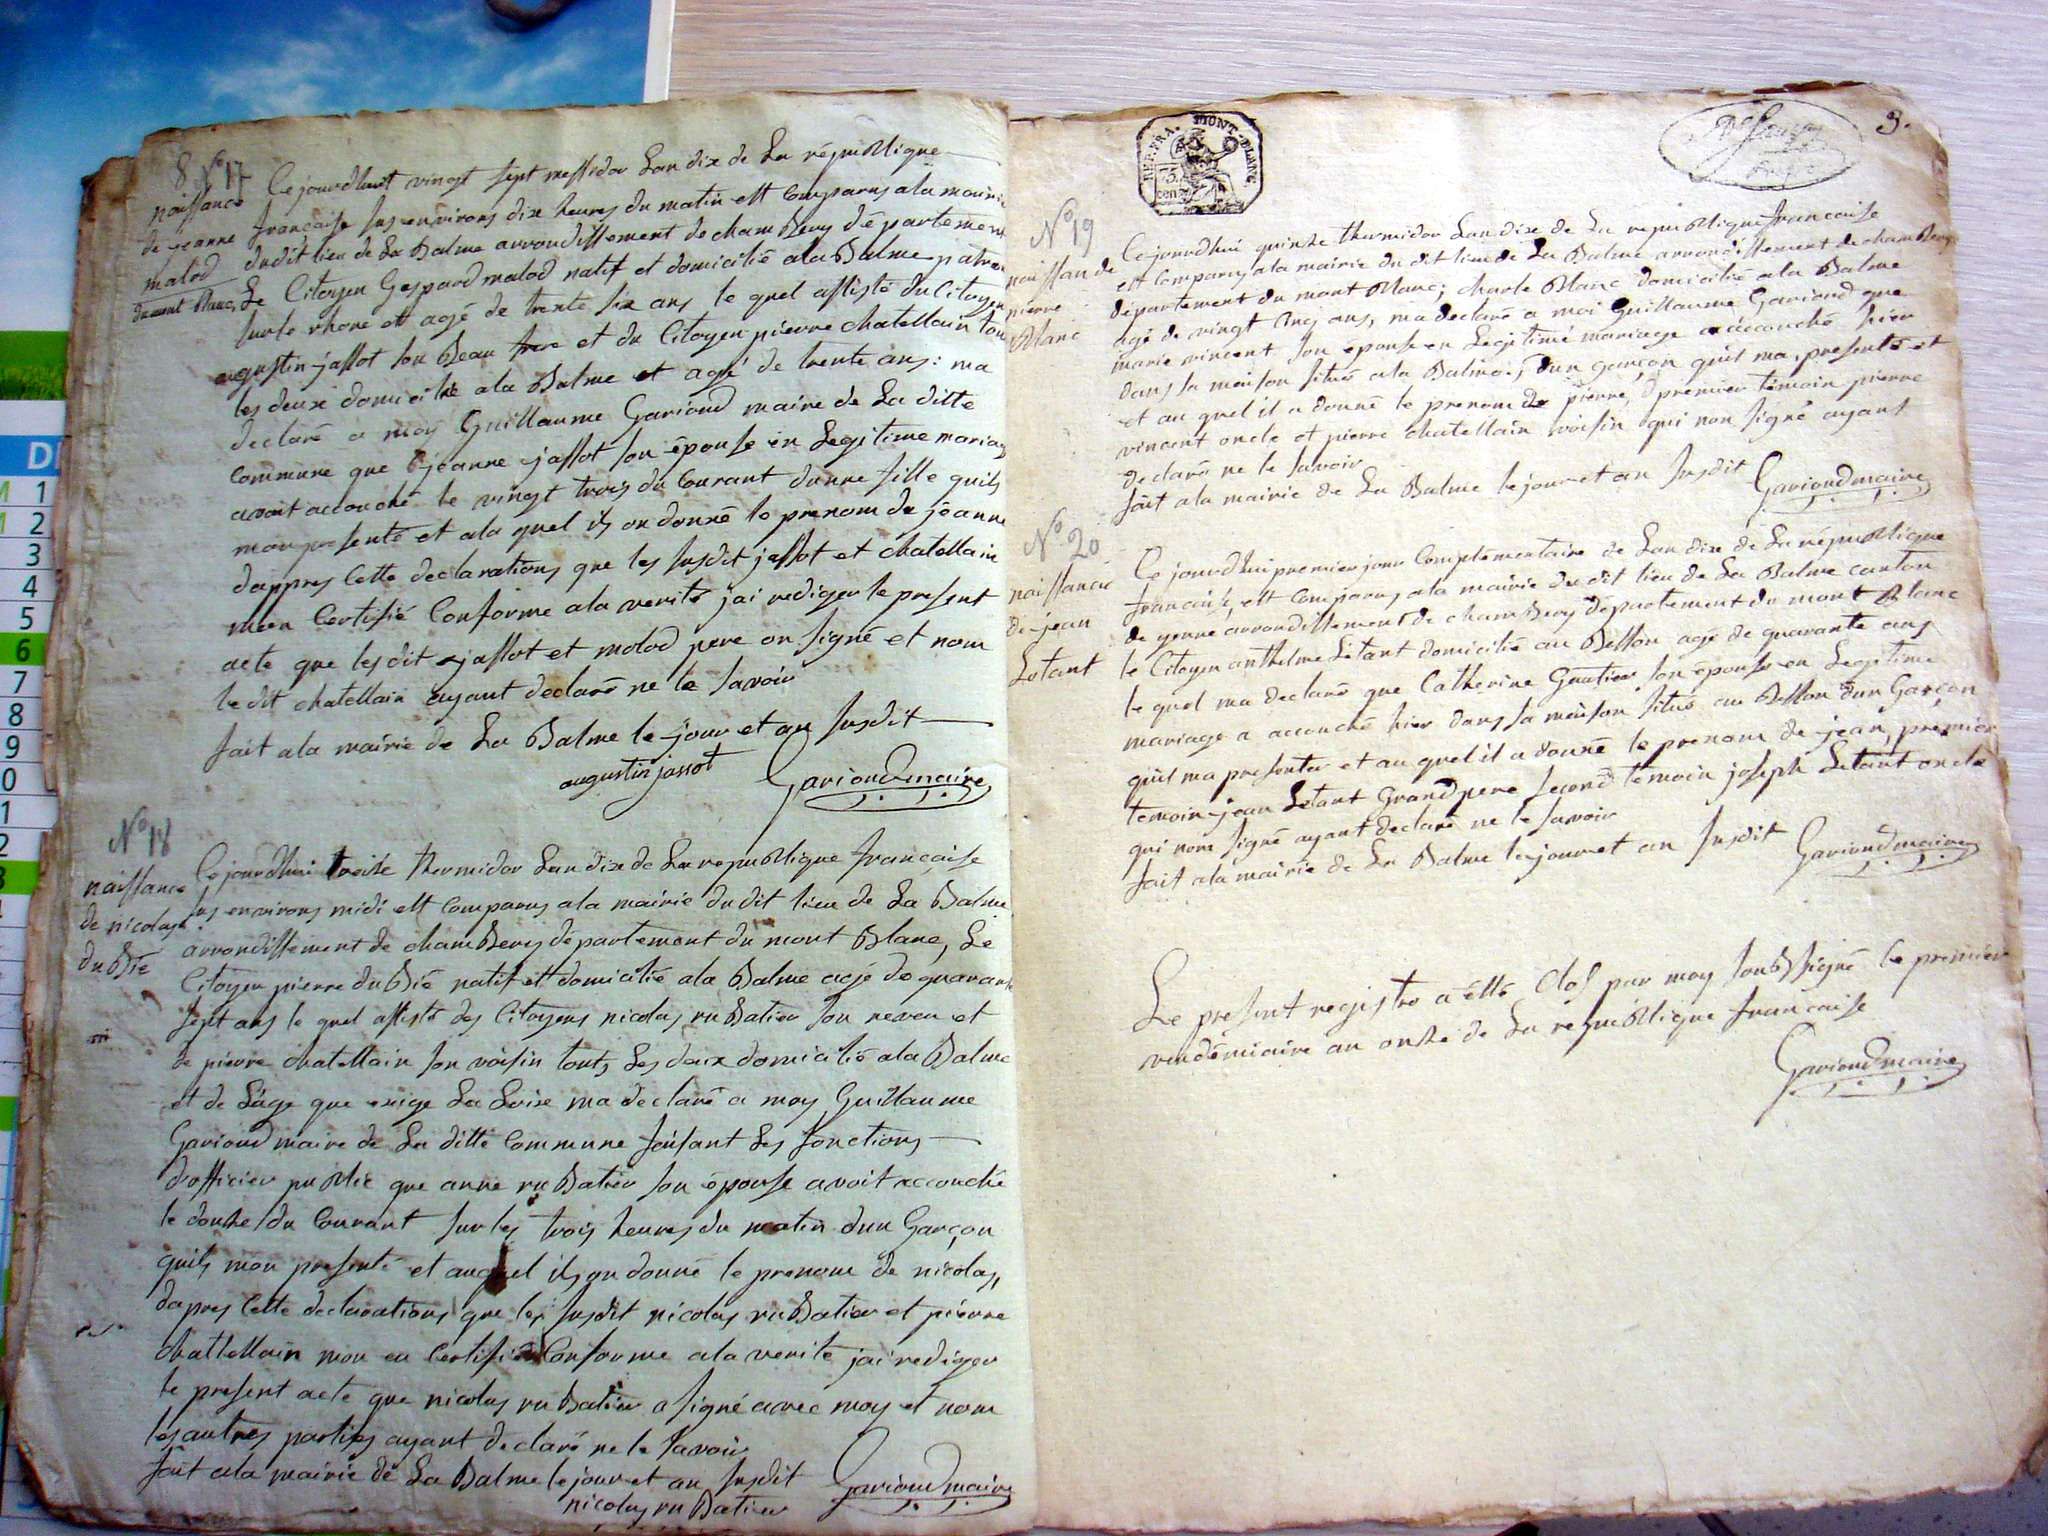 8 N° 17
naissance
de jeanne
malod
Ce jourdhuit vingt sept messidor Lan dix de La république
française sus environs dix heures du matin est comparus a la mairie
dudit lieu de La Balme arrondissement de chamBery département
du mont Blanc, Le Citoyen Gaspard malod natif et domicilié a la Balme patron
sur le rhone et agé de trente six ans le quel assisté du Citoyen
augustin jassot son Beau frere et du Citoyen pierre chatellain tous
les deux domicilié a la Balme et agé de trente ans: ma
declaré a moy Guillaume Gariond maire de La ditte
commune que jeanne jassot son épouse en Legitime mariage
avoit accouché le vingt trois du Courant dunne fille quils
mon presenté et a la quel ils on donné le prenom de jeanne
dappres Cette declarations que les susdit jassot et chatellain
mon Certifié Conforme a la verité jai rediger le present
acte que lesdit jassot et malod pere on signé et nom
le dit chatellain ayant declaré ne le savoir
fait a la mairie de La Balme le jour et an susdit
augustin jassot Gariond maire
N° 18
naissance
de nicolas
du Bié
Ce jourdhui treise thermidor Lan dix de La republique française
sus environs midi est comparus a la mairie dudit lieu de La Balme
arrondissement de chamBery département du mont Blanc, Le
Citoyen pierre du Bié natif et domicilié a la Balme agé de quarante
sept ans le quel assisté des Citoyens nicolas ruBatier son neveu et
de pierre chatellain son voisin touts Les deux domicilié a la Balme
et de L'âge que exige La Loix ma declaré a moy Guillaume
Gariond maire de La ditte Commune faisant Les fonctions
d'officier puBlic que anne ruBatier son épouse avoit accouché
le douse du Courant sur les trois heures du matin dun Garçon
quils mon presenté et auquel ils on donné le prenom de nicolas,
dapres Cette declarations que les susdit nicolas ruBatier et piérre
chattellain mon en Certifié Conforme a la verité jai rediger
le present acte que nicolas ruBatier a signé avec moy et nom
les autres parties ayant declaré ne le savoir
fait a la mairie de La Balme le jour et an susdit Gariond maire
nicolas ruBatier
REP. FRA. MONT-BLANC
75
cen
3.
N° 19
naissan de
piérre
Blanc
Ce jourdhui quinse thermidor Lan dix de La repuBlique francaise
est Comparus a la mairie du dit lieu de La Balme arrondissement de chamBery
département du mont Blanc; charle Blanc domicilié a la Balme
agé de vingt cinq ans, ma declaré a moi Guillaume Gariond que
marie vincent son épouse en Legitime mariage a accouché hier
dans sa meison situé a la Balme; dun garçon quil ma presenté et
et au quel il a donné le prenom de piérre, premier témoin piérre
vincent oncle et pierre chatellain voisin qui non signé ayant
declaré ne le savoir
fait a la mairie de La Balme le jour et an susdit Gariond maire
N° 20
naissance
de jean
Létant
Ce jourdhui premier jour Complémentaire de Lan dix de La république
francaise, est Comparus a la mairie du dit lieu de La Balme canton
de yenne arrondissement de chamBery département du mont Blanc
le Citoyen anthelme Létant domicilié au Besson agé de quarante ans
le quel ma declaré que Catherine Gautier son épouse en Legitime
mariage a accouché hier dans sa meison situé au Besson dun Garçon
quil ma presenter et au quel il a donné le prenom de jean, prémier
temoin jean Létant Grand pere second temoin joseph Letant oncle
qui nom signé ayant declaré ne le savoir
fait a la mairie de La Balme le jour et an susdit Gariond maire
Le present registre a été Clos par moy souBsigné le premier
vendémiaire an onse de La repuBlique francaise
Gariond maire
D
1
2
3
4
5
6
7
8
9
0
1
2
3